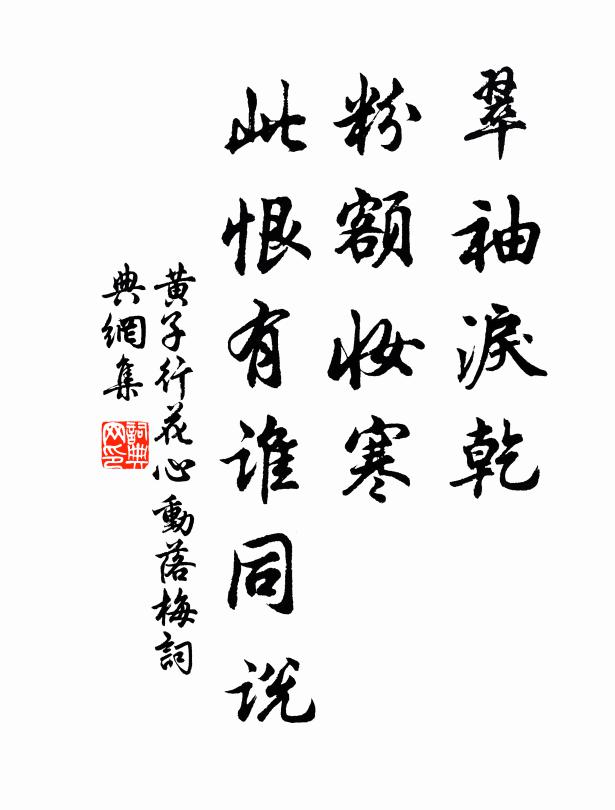 翠袖淚乾
粉額妝寒
此恨有誰同说
黄子行花心動落梅詞
典網集
詞典网印